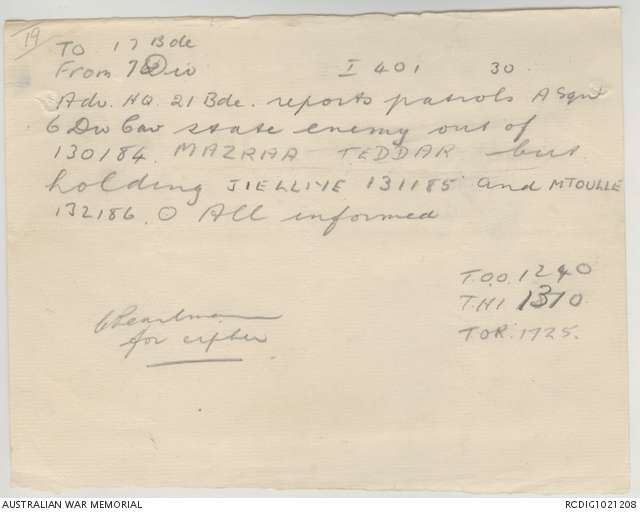 19
TO 17 Bde
From 7 Div I 401 30
Adv. HQ. 21 Bde. reports patrols A Sqn
6 Div Cav state enemy out of
130184. MAZRAA TEDDAR but
holding JIELLIYE 131185 and MTOULLE
132186. O All informed
T.O.O. 1240
T.H.I 1310
TOR. 1725.
for cipher
AUSTRALIAN WAR MEMORIAL RCDIG1021208